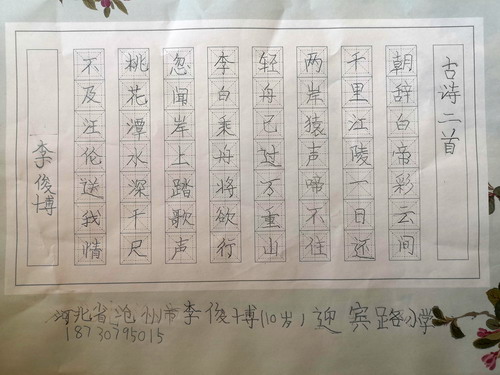 古诗二首
朝辞白帝彩云间
千里江陵一日还
两岸猿声啼不住
轻舟已过万重山
李白乘舟将欲行
忽闻岸上踏歌声
桃花潭水深千尺
不及汪伦送我情
李俊博
河北省沧州市李俊博(10岁)迎宾路小学
18730795015